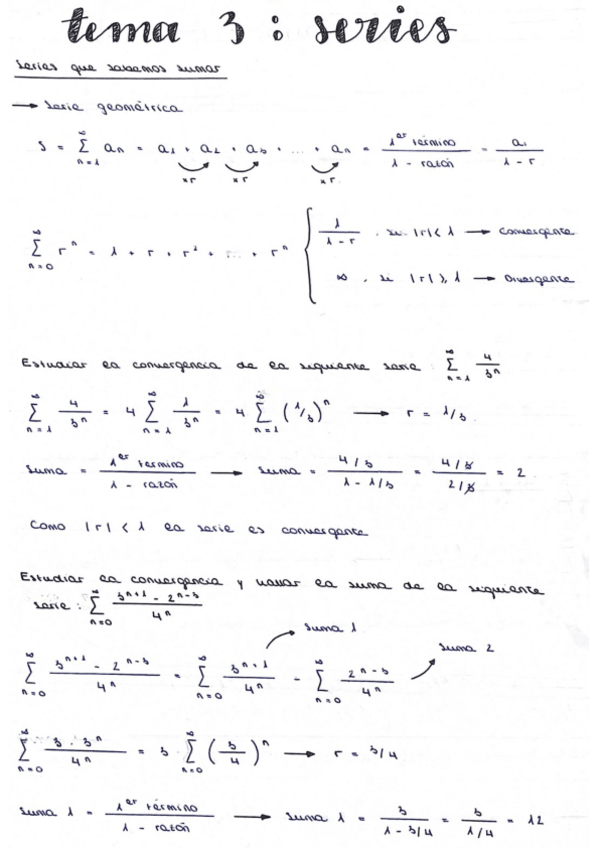 tema 3 : series
series que sabemos sumar
→ serie geométrica
S = ∑_{n=1}^{∞} an = a1 + a2 + a3 + ... + an = 1er término / 1 - razón = a1 / 1 - r
xr xr xr
∑_{n=0}^{∞} r^n = 1 + r + r² + ... + r^n { 1 / 1 - r , si |r| < 1 → convergente
∞ , si |r| ⩾ 1 → Divergente
Estudiar la convergencia de la siguiente serie : ∑_{n=1}^{∞} 4 / 3^n
∑_{n=1}^{∞} 4 / 3^n = 4 ∑_{n=1}^{∞} 1 / 3^n = 4 ∑_{n=1}^{∞} (1/3)^n → r = 1/3
suma = 1er término / 1 - razón → suma = 4/3 / 1 - 1/3 = 4/3 / 2/3 = 2
Como |r| < 1 la serie es convergente
Estudiar la convergencia y hallar la suma de la siguiente
serie : ∑_{n=0}^{∞} 3^{n+1} - 2^{n-3} / 4^n
suma 1
suma 2
∑_{n=0}^{∞} 3^{n+1} - 2^{n-3} / 4^n = ∑_{n=0}^{∞} 3^{n+1} / 4^n - ∑_{n=0}^{∞} 2^{n-3} / 4^n
∑_{n=0}^{∞} 3 · 3^n / 4^n = 3 ∑_{n=0}^{∞} (3/4)^n → r = 3/4
suma 1 = 1er término / 1 - razón → suma 1 = 3 / 1 - 3/4 = 3 / 1/4 = 12